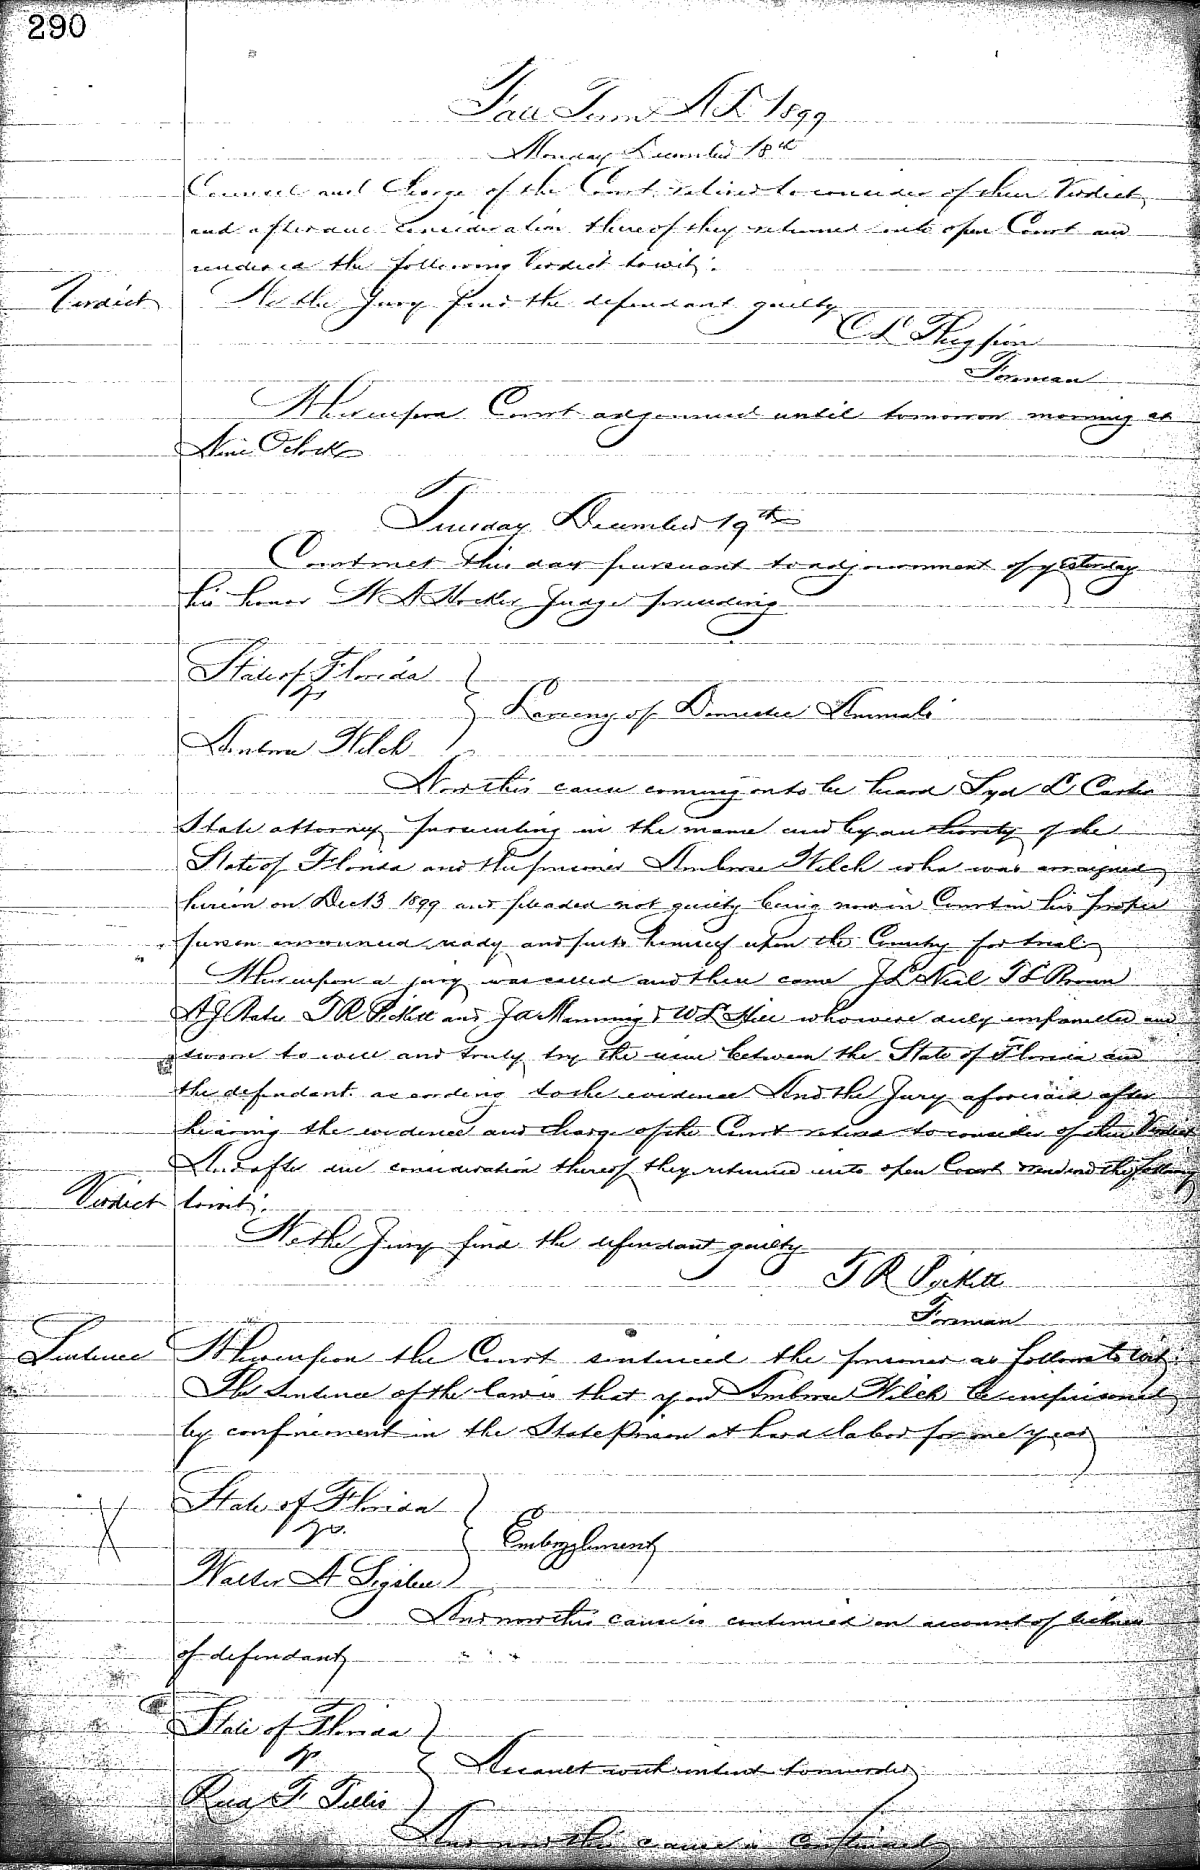 290
Fall Term A D 1899
Monday December 18th
Counsel and Charge of the Court retired to consider of their Verdict
and after due consideration thereof they returned into open Court and
rendered the following Verdict towit:
Verdict We the Jury find the defendant guilty
C L
Foreman
Whereupon Court adjourned until tomorrow morning at
Nine Oclock
Tuesday December 19th
Court met this day pursuant to adjournment of yesterday
his honor W A Hocker Judge presiding
State of Florida
vs
Larceny of Domestic Animals
Ambrose Welch
Now this cause coming on to be heard Syd L Carter
State attorney prosecuting in the name and by authority of the
State of Florida and the prisoner Ambrose Welch who was arraigned
herein on Dec 13 1899 and pleaded not guilty being now in Court in his proper
person announced ready and puts himself upon the Country for trial
Whereupon a jury was called and there came J L Neal T S Brown
A J T R Pickett and J A Manning & W L Hill who were duly empanelled and
sworn to well and truly try the issue between the State of Florida and
the defendant according to the evidence And the Jury aforesaid after
hearing the evidence and charge of the Court retired to consider of their Verdict
And after due consideration thereof they returned into open Court rendered the following
Verdict towit:
We the Jury find the defendant guilty
T R Pickett
Foreman
Sentence Whereupon the Court sentenced the prisoner as follows to wit:
The Sentence of the law is that you Ambrose Welch be imprisoned
by confinement in the State Prison at hard labor for one year
X State of Florida
vs.
Embezzlement
Walter A
And now this cause is continued on account of sickness
of defendant
State of Florida
vs
Assault with intent to murder
F
And now this cause is continued